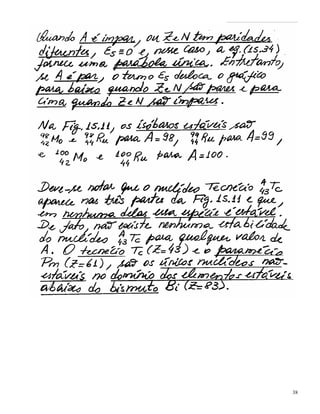 Quando A é ímpar, ou Z e N têm paridades
diferentes, Es = 0 e, nesse caso, a eq. (15.34)
fornece uma parábola única. Entretanto,
se A é par, o termo Es desloca o gráfico
para baixo quando Z e N são pares e para
cima, quando Z e N são ímpares.
Na Fig. 15.11, os isóbaros estáveis são
⁹⁸₄₂Mo e ⁹⁸₄₄Ru para A = 98, ⁹⁹₄₄Ru para A = 99,
e ¹⁰⁰₄₂Mo e ¹⁰⁰₄₄Ru para A = 100.
Deve-se notar que o nuclídeo Tecnécio ᴬ₄₃Tc
aparece nas três partes da Fig. 15.11 e que,
em nenhuma delas essa espécie é estável.
De fato, não existe nenhuma estabilidade
do nuclídeo ᴬ₄₃Tc para qualquer valor de
A. O tecnécio Tc (Z=43) e o paramécio
Pm (Z=61), são os únicos nuclídeos não-
estáveis no domínio dos elementos estáveis
abaixo do bismuto Bi (Z=83).
38